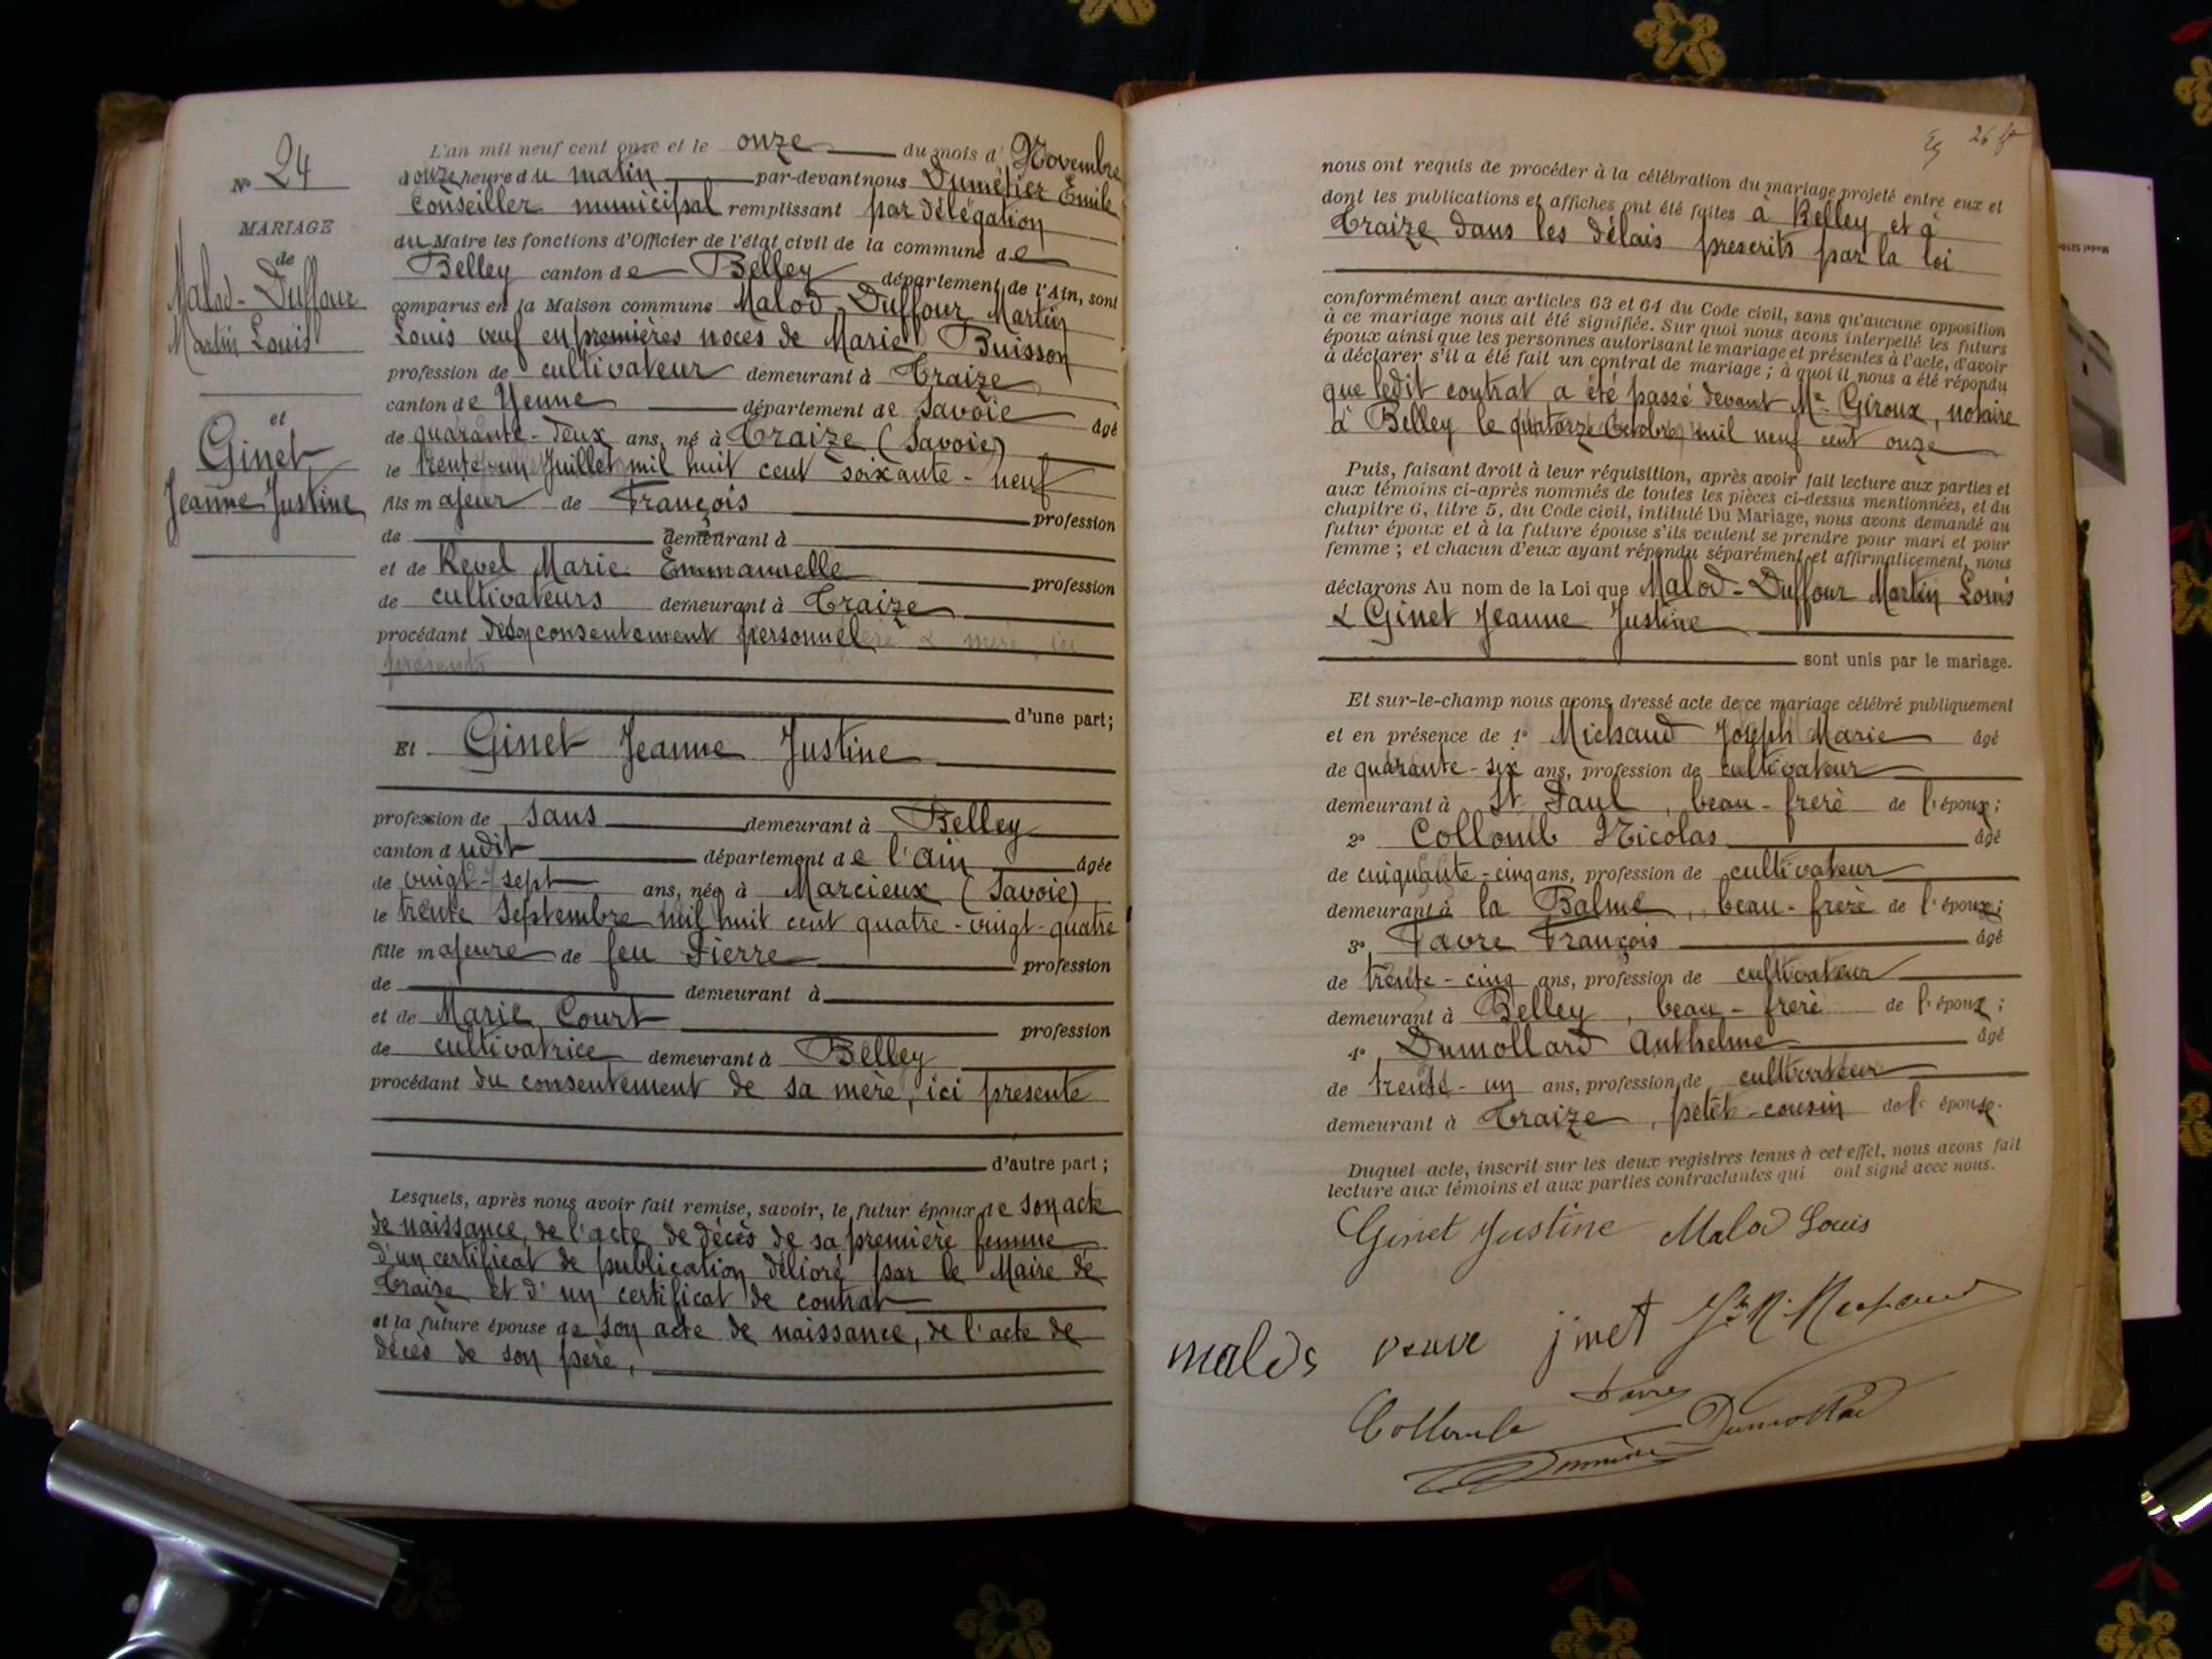 N° 24
MARIAGE
de
Malod-Duffour
Martin Louis
et
Ginet
Jeanne Justine
L'an mil neuf cent onze et le onze du mois d' Novembre
à onze heure du matin par-devant nous Dumétier Emile
Conseiller municipal remplissant par délégation
du Maire les fonctions d'Officier de l'état civil de la commune de
Belley canton de Belley département de l'Ain, sont
comparus en la Maison commune Malod-Duffour Martin
Louis veuf en premières noces de Marie Buisson
profession de cultivateur demeurant à Traize
canton de Yenne département de Savoie âgé
de quarante-deux ans, né à Traize (Savoie)
le trente-un Juillet mil huit cent soixante-neuf
fils majeur de François profession
de demeurant à
et de Revel Marie Emmanuelle profession
de cultivateurs demeurant à Traize
procédant de son consentement personnel
d'une part;
Et Ginet Jeanne Justine
profession de sans demeurant à Belley
canton dudit département de l'Ain âgée
de vingt-sept ans, née à Marcieux (Savoie)
le trente Septembre mil huit cent quatre-vingt-quatre
fille majeure de feu Pierre profession
de demeurant à
et de Marie Court profession
de cultivatrice demeurant à Belley
procédant du consentement de sa mère, ici présente
d'autre part;
Lesquels, après nous avoir fait remise, savoir, le futur époux de son acte
de naissance, de l'acte de décès de sa première femme
d'un certificat de publication délivré par le Maire de
Traize et d'un certificat de contrat
et la future épouse de son acte de naissance, de l'acte de
décès de son père,
26
nous ont requis de procéder à la célébration du mariage projeté entre eux et
dont les publications et affiches ont été faites à Belley et à
Traize dans les délais prescrits par la loi
conformément aux articles 63 et 64 du Code civil, sans qu'aucune opposition
à ce mariage nous ait été signifiée. Sur quoi nous avons interpellé les futurs
époux ainsi que les personnes autorisant le mariage et présentes à l'acte, d'avoir
à déclarer s'il a été fait un contrat de mariage; à quoi il nous a été répondu
que ledit contrat a été passé devant Me Giroux, notaire
à Belley le quatorze Octobre mil neuf cent onze
Puis, faisant droit à leur réquisition, après avoir fait lecture aux parties et
aux témoins ci-après nommés de toutes les pièces ci-dessus mentionnées, et du
chapitre 6, titre 5, du Code civil, intitulé Du Mariage, nous avons demandé au
futur époux et à la future épouse s'ils veulent se prendre pour mari et pour
femme; et chacun d'eux ayant répondu séparément et affirmativement, nous
déclarons Au nom de la Loi que Malod-Duffour Martin Louis
& Ginet Jeanne Justine
sont unis par le mariage.
Et sur-le-champ nous avons dressé acte de ce mariage célébré publiquement
et en présence de 1° Michaud Joseph Marie âgé
de quarante-six ans, profession de cultivateur
demeurant à St Paul, beau-frère de l'époux;
2° Collomb Nicolas âgé
de cinquante-cinq ans, profession de cultivateur
demeurant à la Balme, beau-frère de l'époux;
3° Favre François âgé
de trente-cinq ans, profession de cultivateur
demeurant à Belley, beau-frère de l'époux;
4° Dumollard Anthelme âgé
de trente-un ans, profession de cultivateur
demeurant à Traize, petit-cousin de l'épouse.
Duquel acte, inscrit sur les deux registres tenus à cet effet, nous avons fait
lecture aux témoins et aux parties contractantes qui ont signé avec nous.
Ginet Justine Malod Louis
malod veuve jinet
Favre
Collomb Dumollard